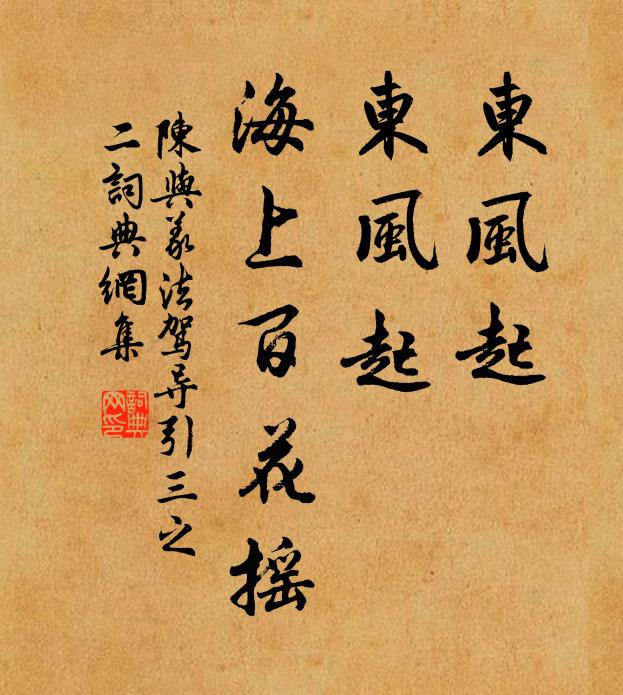 東風起
東風起
海上百花摇
陳與義法驾导引三之
二詞典網集
詞典
网印